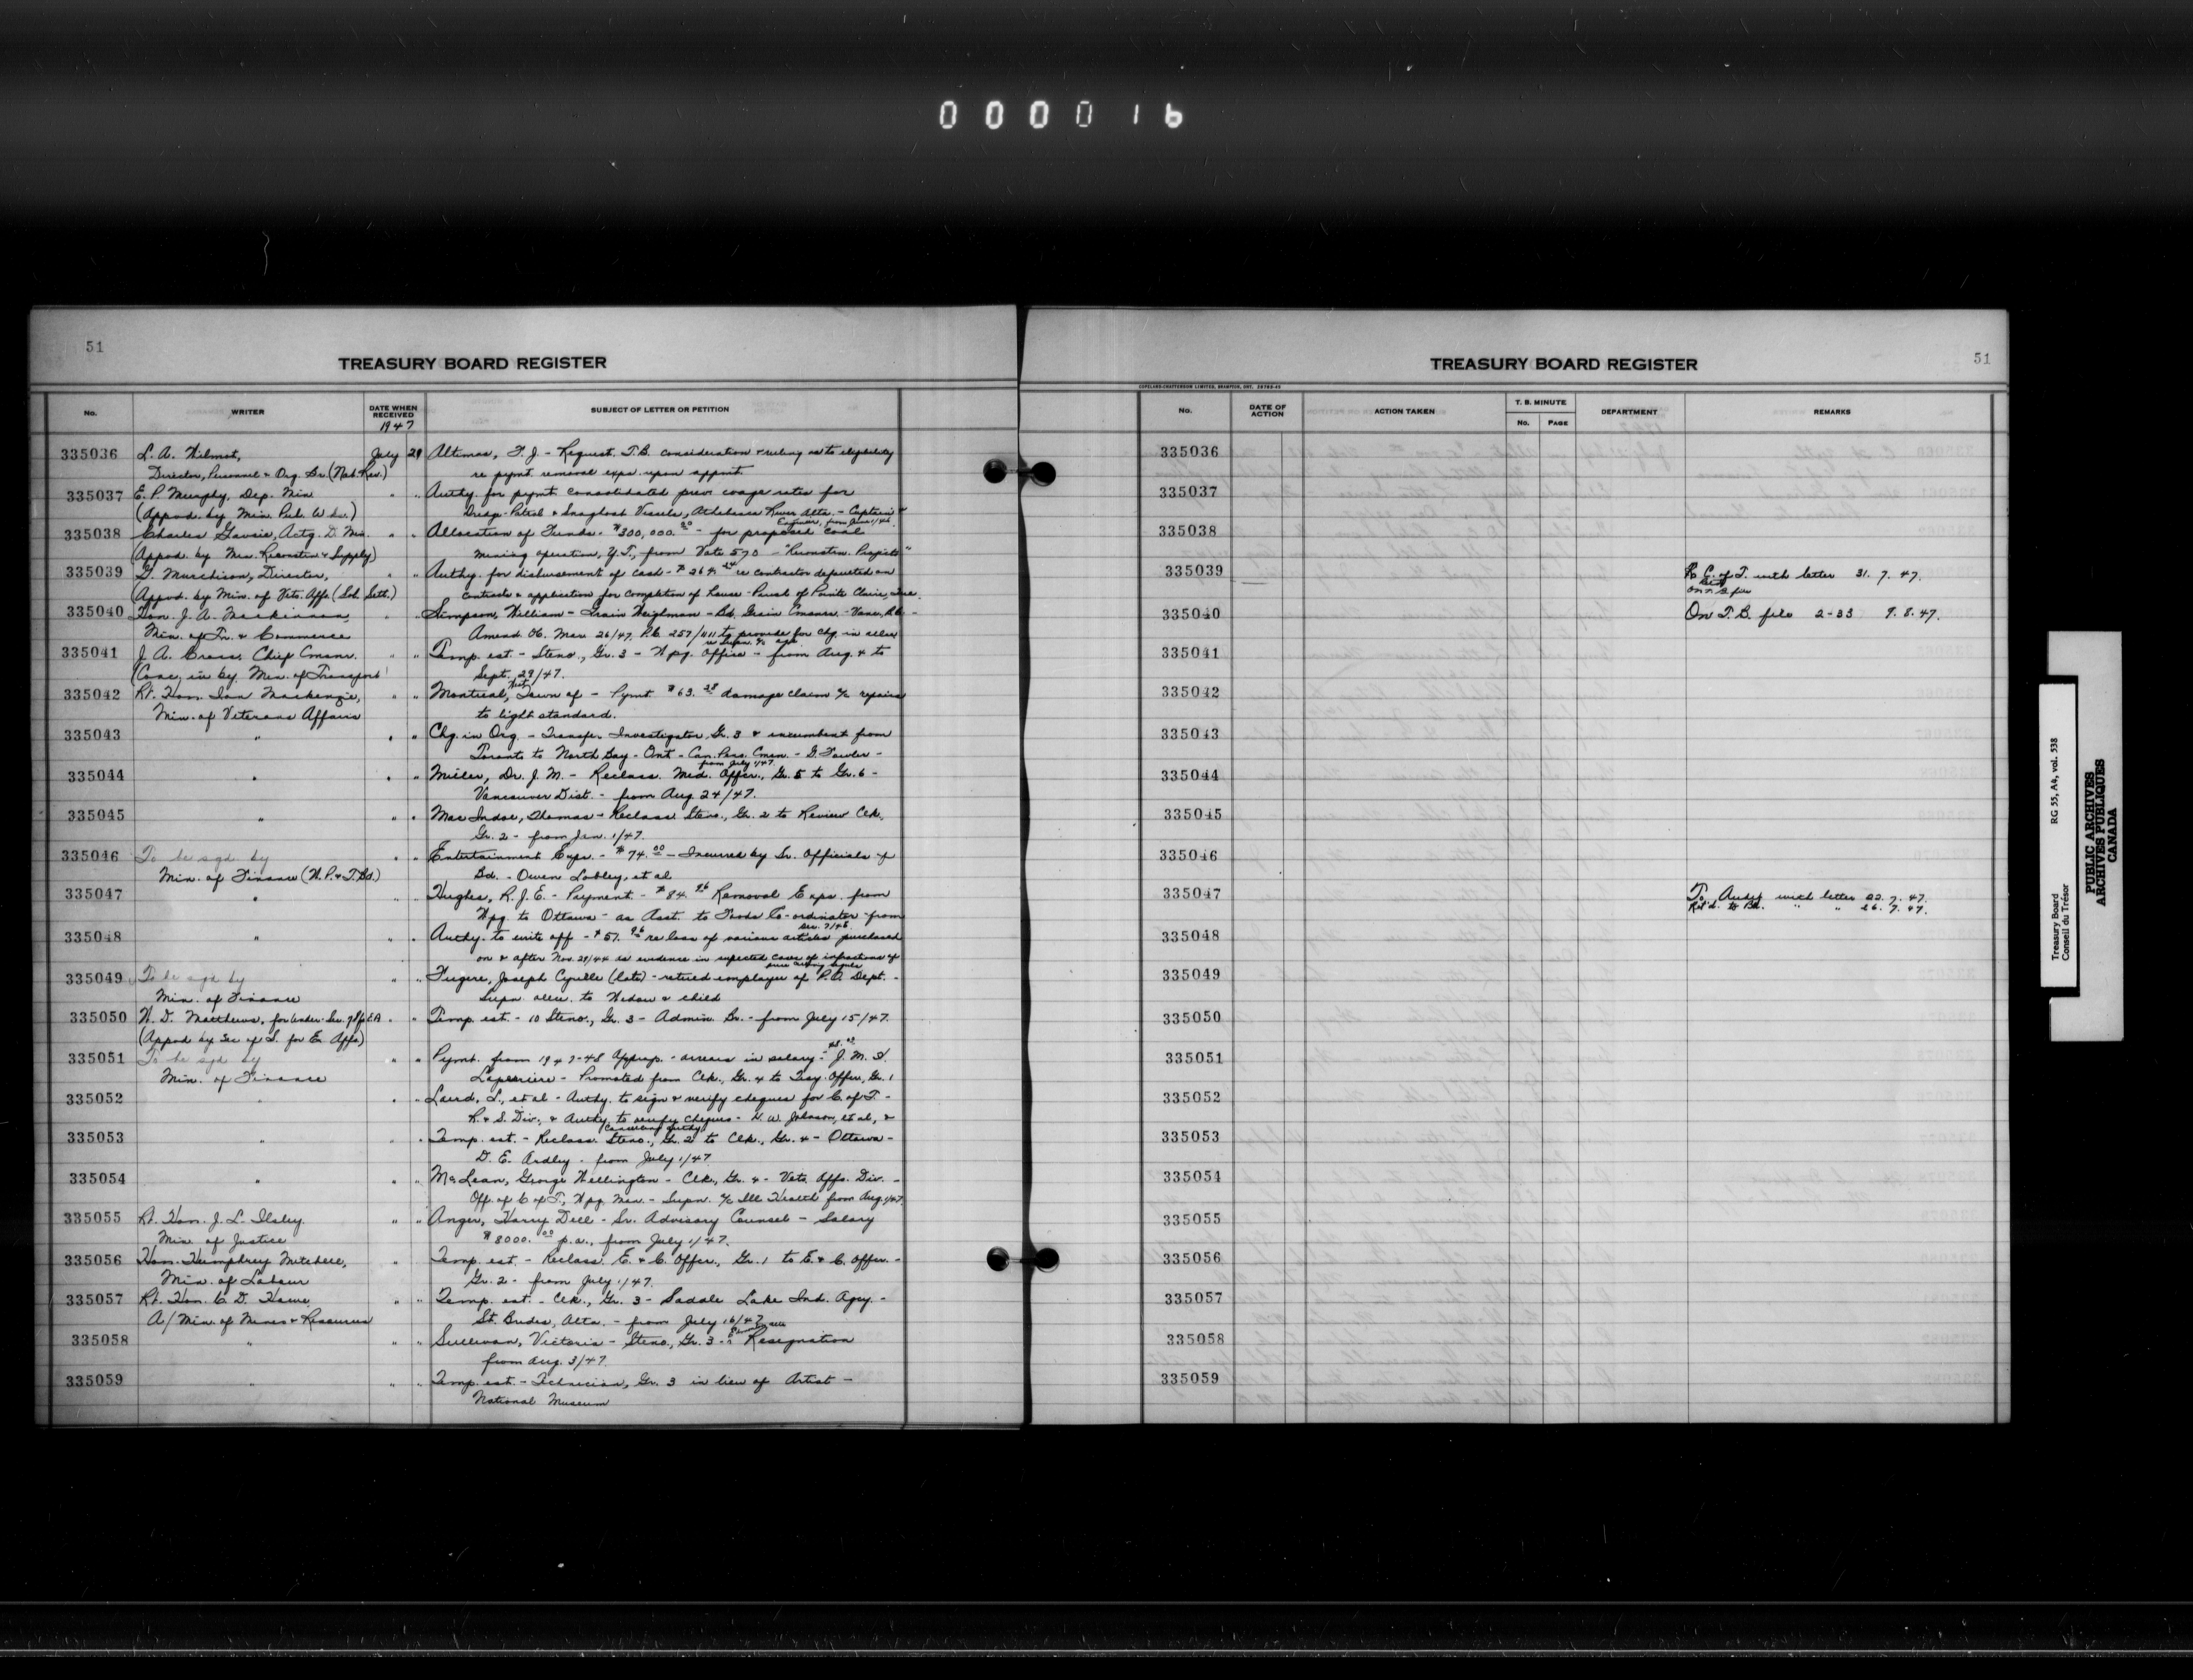 000016
51
TREASURY BOARD REGISTER
No.
WRITER
DATE WHEN RECEIVED
1947
SUBJECT OF LETTER OR PETITION
335036 L. A. Wilmot, July 29 Altimas, F. J. - Request T.B. consideration & ruling as to eligibility
Director, Personnel & Org. Br. (Nat. Rev.) re pymt removal exps. upon appmt.
335037 E. P. Murphy, Dep. Min " " Authy. for pymt. consolidated prev. wage rates for
(Appvd. by Min. Pub. Wks.) Dredge-Patrol & Snagboat Vessels, Athabasca River Alta. - Captain &
Engineer, from June 1/46.
335038 Charles Gavsie, Actg. D. Min. " " Allocation of Funds - $300,000.00 - for proposed coal
(Appvd. by Min. Reconstn & Supply) mining operation, Y.T., from Vote 570 - "Reconstn. Projects"
335039 G. Murchison, Director, " " Authy. for disbursement of cash - $264.24 re contractor defaulted on
(Appvd. by Min. of Vets. Affs. (Sol. Sett.) contracts & application for completion of house - Parish of Pointe Claire, Que.
335040 Hon. J. A. Mackinnon, " " Simpson, William - Grain Weighman - Bd. Grain Comsnrs - Vanc., B.C. -
Min. of Tr. & Commerce Amend. OC. Mar. 26/47, P.C. 257/1111 to provide for chg. in allce
re Supn. a/c age
335041 J. A. Cross, Chief Cmsnr. " " Temp. est. - Steno., Gr. 3 - Wpg. Office - from Aug. 4 to
(Conc. in by Min. of Transport) Sept. 29/47.
335042 Rt. Hon. Ian Mackenzie, " " Montreal, West Town of - Pymt. $63.28 damage claim a/c repairs
Min. of Veterans Affairs to light standard.
335043 " " " Chg. in Org. - Transfer Investigator, Gr. 3 & incumbent from
Toronto to North Bay - Ont - Can. Pens. Cmsn. - G. Fowler -
from July 1/47
335044 " " " Miller, Dr. J. M. - Reclass. Med. Offcr., Gr. 5 to Gr. 6 -
Vancouver Dist. - from Aug. 24/47.
335045 " " " MacIndoe, Thomas - Reclass. Steno., Gr. 2 to Review Clk.
Gr. 2 - from Jan. 1/47.
335046 To be sgd. by " " Entertainment Exps. - $74.00 - Incurred by Sr. Officials of
Min. of Finance (W.P. & T.Bd.) Bd. - Owen Lobley, et al
335047 " " " Hughes, R. J. E. - Payment - $84.96 Removal Exps. from
Wpg. to Ottawa - as Asst. to Trade Co-ordinator from
Dec. 7/46.
335048 " " " Authy. to write off - $57.96 re loss of various articles purchased
on & after Nov. 29/44 as evidence in suspected cases of infractions of
price ceiling regula
335049 To be sgd by " " Fugere, Joseph Cyrille (late) - retired employee of P.O. Dept. -
Min. of Finance Supn. allce. to Widow & child
335050 W. D. Matthews, for Under-Sec. of S. for E.A. " " Temp. est. - 10 Steno., Gr. 3 - Admin. Br. - from July 15/47.
(Appvd by Sec of S. for Ex. Affs)
335051 To be sgd by " " Pymt. from 1947-48 Approp. - arrears in salary - J. M. H.
Min. of Finance Laperriere - Promoted from Clk., Gr. 4 to Treas. Offcr., Gr. 1
335052 " " " Laird, L., et al - Authy. to sign & verify cheques for C. of T. -
R. & S. Div., & Authy. to verify cheques - H. W. Johnson, et al, &
(Cancelling Authy.)
335053 " " " Temp. est. - Reclass. Steno., Gr. 2 to Clk., Gr. 4 - Ottawa -
D. E. Ardley - from July 1/47
335054 " " " McLean, George Wellington - Clk., Gr. 4 - Vets. Affs. Div. -
Off. of C of T, Wpg. Man. - Supn. a/c Ill Health from Aug. 1/47
335055 Rt. Hon. J. L. Ilsley. " " Anger, Harry Dell - Sr. Advisory Counsel - Salary
Min. of Justice $8000.00 p.a., from July 1/47.
335056 Hon. Humphrey Mitchell, " Temp. est. - Reclass. E. & C. Offcr., Gr. 1 to E. & C. Offcr. -
Min. of Labour Gr. 2 - from July 1/47.
335057 Rt. Hon. C. D. Howe " " Temp. est. - Clk., Gr. 3 - Saddle Lake Ind. Agcy. -
A/ Min. of Mines & Resources St. Brides, Alta. - from July 16/47
335058 " " " Sullivan, Victoria - Steno., Gr. 3 - Resignation
from Aug. 3/47.
335059 " " " Temp. est. - Technician, Gr. 3 in lieu of Artist -
National Museum
TREASURY BOARD REGISTER
51
COPELAND-CHATTERSON LIMITED, BRAMPTON, ONT.
No.
DATE OF ACTION
ACTION TAKEN
T. B. MINUTE
No.
PAGE
DEPARTMENT
REMARKS
335036
335037
335038
335039 To C. of T. with letter 31. 7. 47.
On T.B. file
335040 On T.B. file 2-33 9. 8. 47.
335041
335042
335043
335044
335045
335046
335047 To Audit with letter 22. 7. 47.
Ret'd. to Bd. " " 26. 7. 47.
335048
335049
335050
335051
335052
335053
335054
335055
335056
335057
335058
335059
Treasury Board RG 55, A4, vol. 538
Conseil du Trésor
PUBLIC ARCHIVES
ARCHIVES PUBLIQUES
CANADA